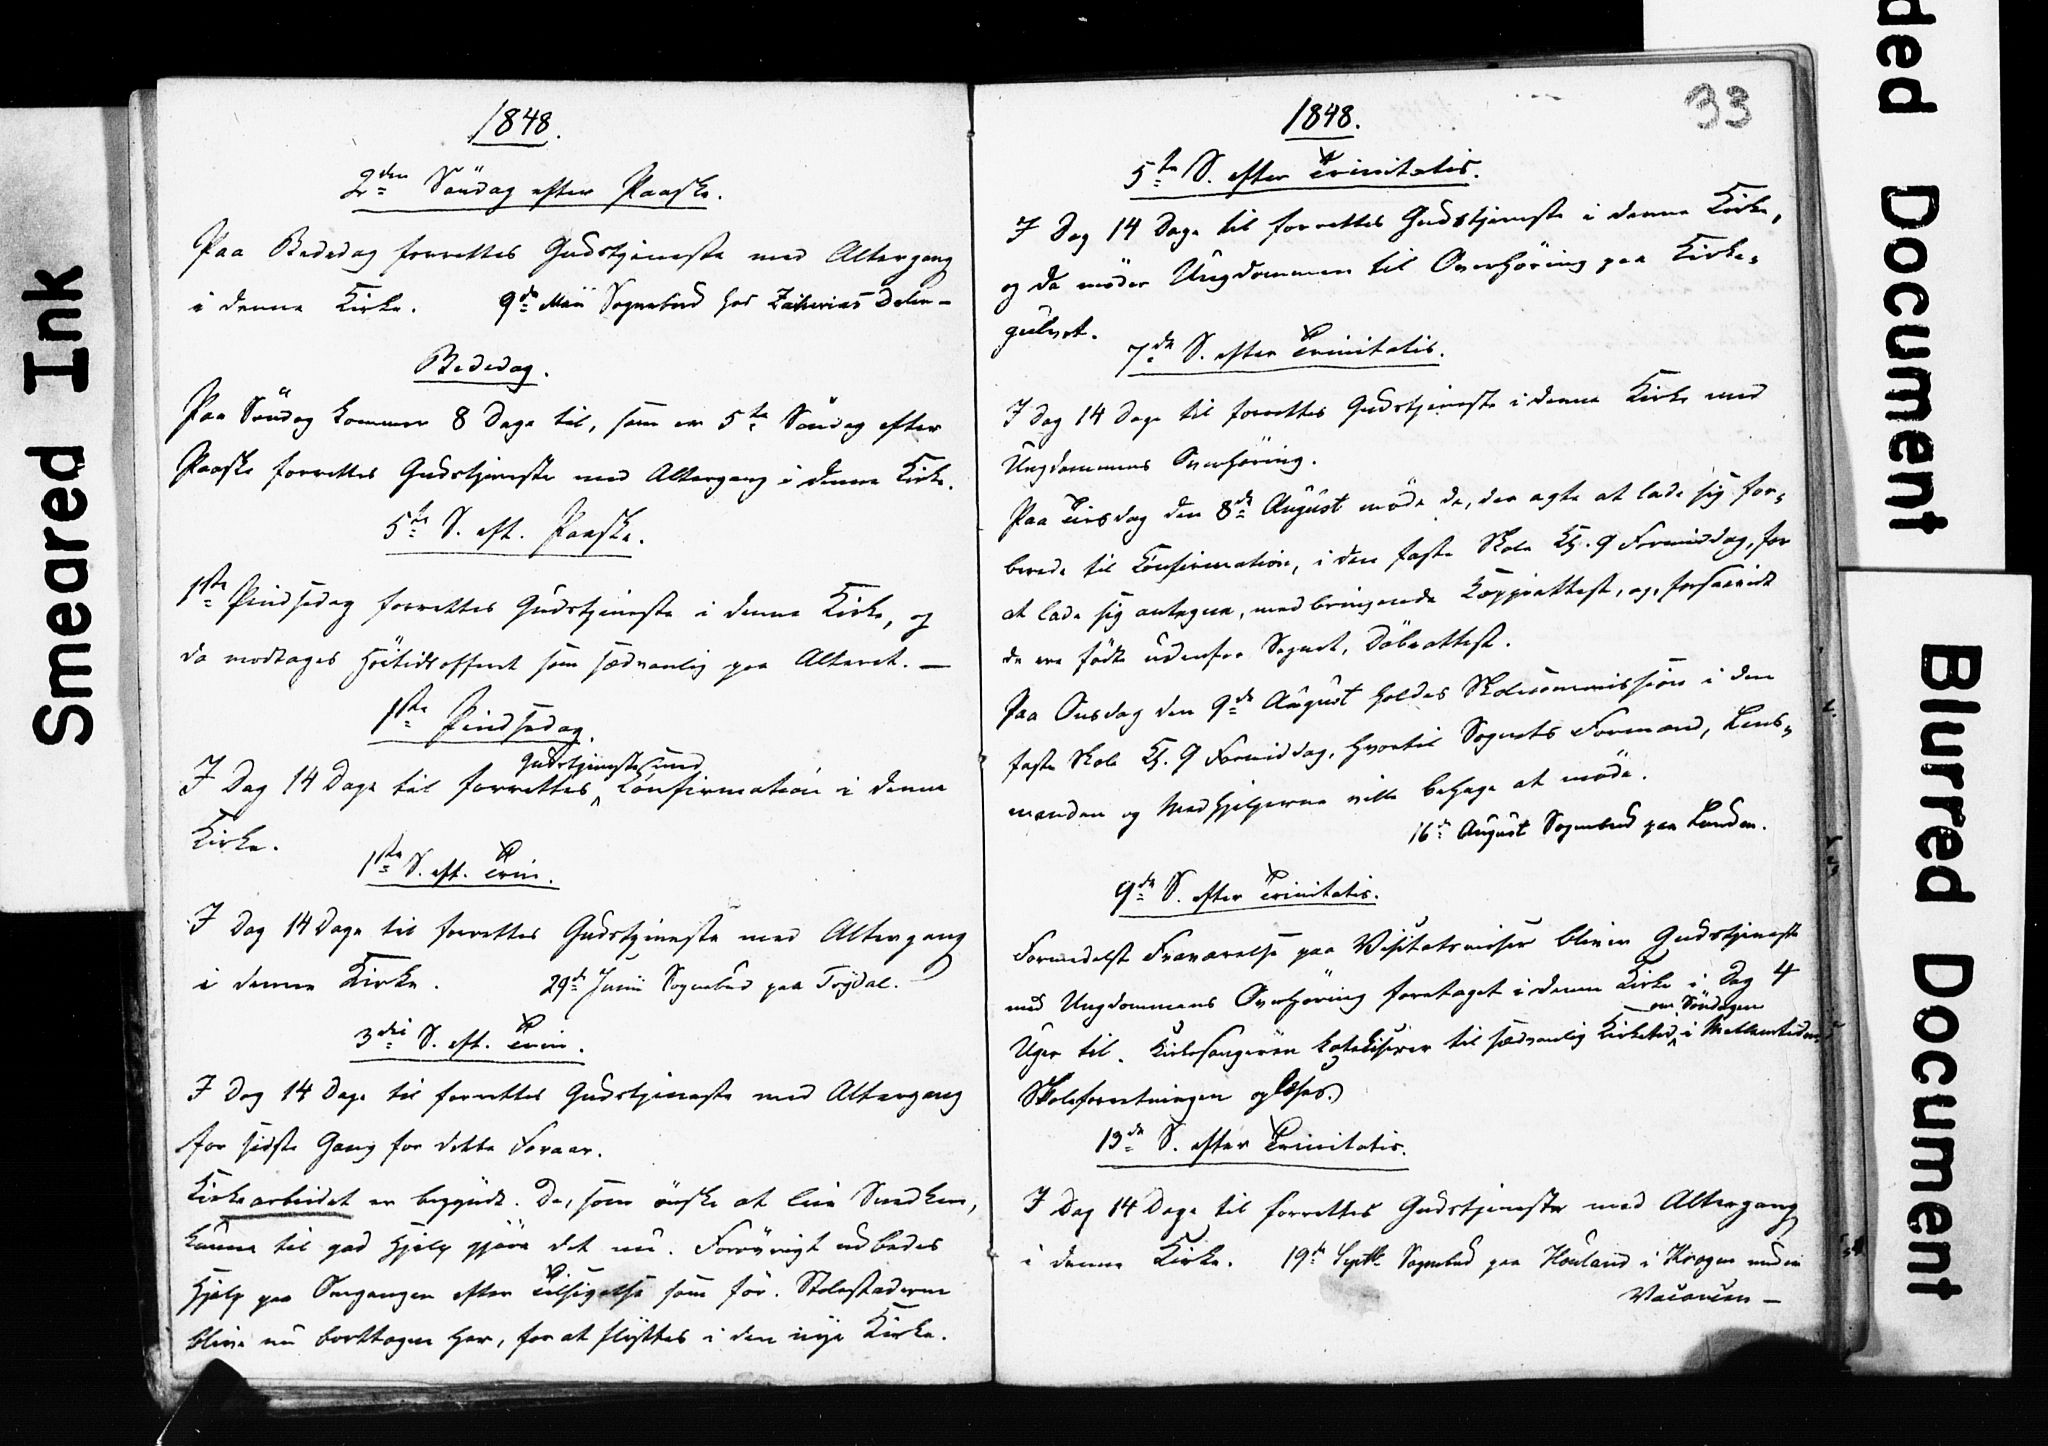 1848.
2den Söndag efter Paaske.
Paa Bededag forrettes Gudstjeneste med Altergang
i denne Kirke. 9de Maii Sognebud hos Zakarias
Bededag.
Paa Söndag kommer 8 Dage til, som er 5te Söndag efter
Paaske forrettes Gudstjeneste med Altergang i denne Kirke.
5te S. eft. Paaske.
1ste Pindsedag forrettes Gudstjeneste i denne Kirke, og
da modtages Höitidsofferet som sædvanlig paa Alteret. —
1ste Pindsedag.
Gudstjeneste med
I Dag 14 Dage til forrettes Confirmation i denne
Kirke.
1ste S. eft. Trin.
I Dag 14 Dage til forrettes Gudstjeneste med Altergang
i denne Kirke. 29de Junii Sognebud paa Trydal.
3die S. eft. Trin.
I Dag 14 Dage til forrettes Gudstjeneste med Altergang
for sidste Gang for dette Foraar.
Kirkearbeidet er begyndt. De, som önske at
kunne til god Hjelp gjöre det nu. Forövrigt udbedes
Hjelp paa Omgangen efter Tilsigelse som för. Stolestaderne
blive nu borttagen her, for at flyttes i den nye Kirke.
33
1848.
5te S. efter Trinitatis.
I Dag 14 Dage til forrettes Gudstjeneste i denne Kirke,
og da möder Ungdommen til Overhöring paa Kirke-
gulvet.
7de S. efter Trinitatis.
I Dag 14 Dage til forrettes Gudstjeneste i denne Kirke med
Ungdommens Overhöring.
Paa Tirsdag den 8de August möde de, der agte at lade sig for-
berede til Confirmation, i den faste Skole Kl. 9 Formiddag, for
at lade sig antegne, medbringende Koppeattest, og, forsaavidt
de ere födte udenfor Sognet, Döbeattest.
Paa Onsdag den 9de August holdes Skolecommission i den
faste Skole Kl. 9 Formiddag, hvortil Sognets Formænd, Lens-
manden og Medhjelperne ville behage at möde.
16de August Sognebud paa Lunden.
9de S. efter Trinitatis.
Formedelst Fraværelse paa Visitatsreiser bliver Gudstjeneste
med Ungdommens Overhöring foretaget i denne Kirke i Dag 4
om Söndagen
Uger til. Kirkesangeren katekiserer til sædvanlig Kirketid i Mellemtiden
Skoleforretningen oplæses.)
13de S. efter Trinitatis.
I Dag 14 Dage til forrettes Gudstjeneste med Altergang
i denne Kirke. 19de Septbr Sognebud paa Houland i Krogen
—
Smeared Ink
ded Document
Blurred Document